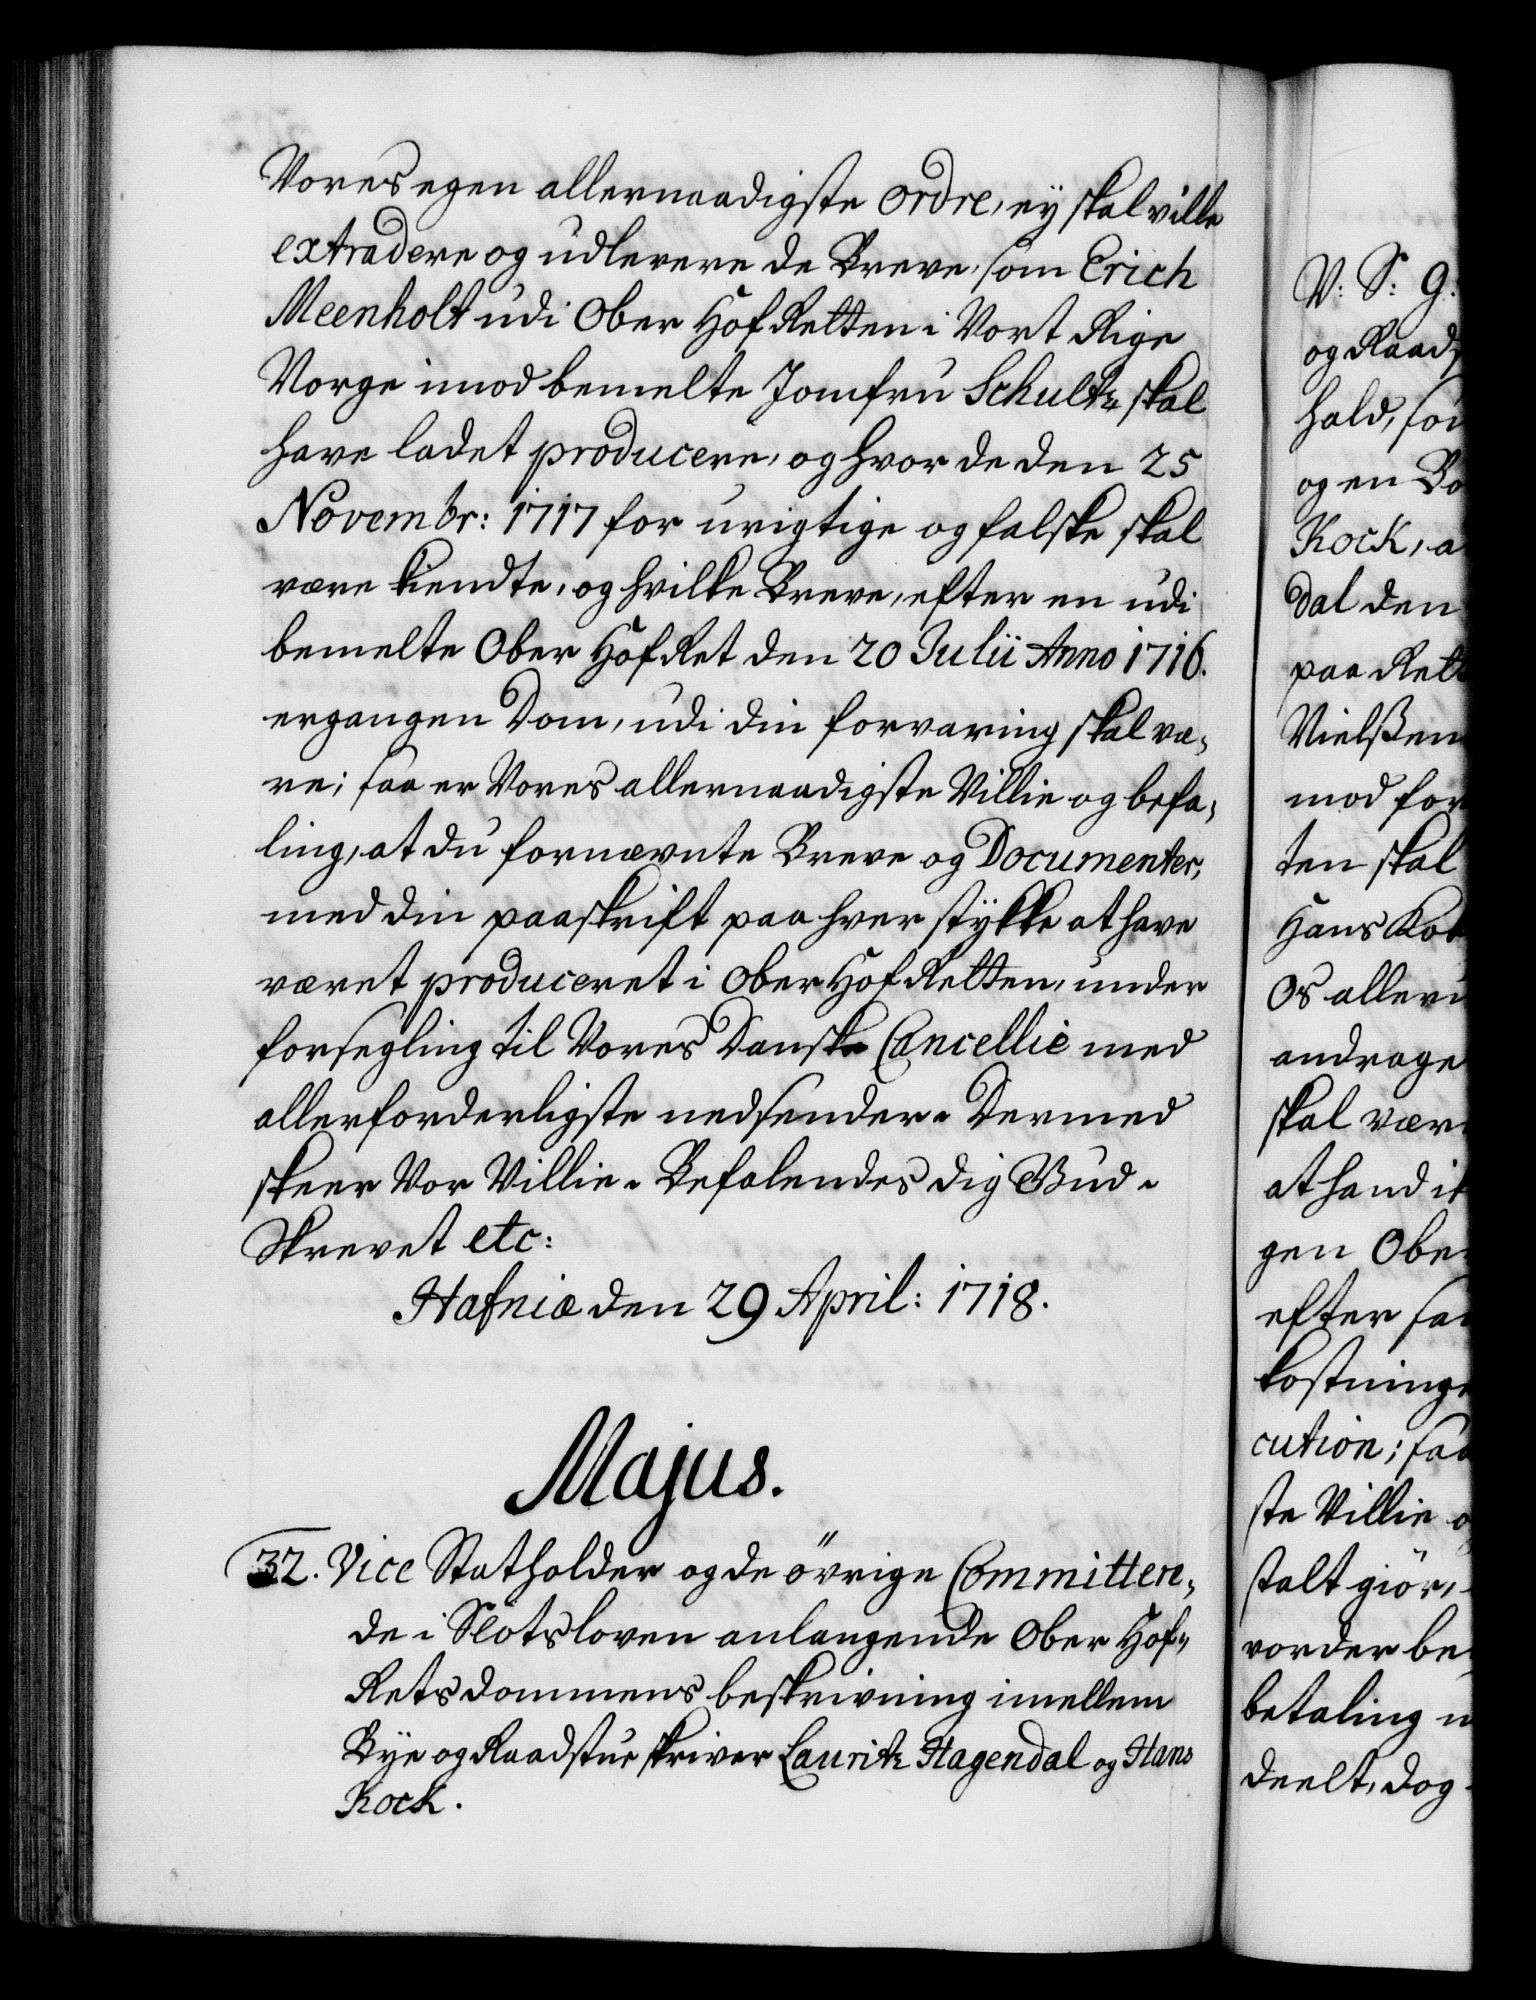 Vores egen allernaadigste ordre, ej skal ville
extradere og udlevere de Breve, som Erich
Meenholt udi Ober Hof Retten i Vort Rige
Norge imod bemelte Jomfru Schultz skal
have ladet producere, og hvor de den 25
Novembr: 1717 for urigtige og falske skal
være kiendte, og hvilke Breve, efter en udi
bemelte Ober Hof Ret den 20 Julii Anno 1716.
ergangen Dom, udi din forvaring skal væ,
re; saa er Vores allernaadigste Villie og befa,
ling, at du fornævnte Breve og Documenter,
med din paaskrift paa hver stykke at have
været produceret i Ober Hof Retten, under
forsegling til Vores Danske Cancellie med
allerforderligste nedsender. Dermed
skeer Vor Villie. Befalendes dig Gud.
Skrevet etc:
Hafniæ den 29 April: 1718.
Majus.
32. Vice Statholder og de övrige Committere,
de i Slotsloven anlangende Ober Hof=
Rets dommens beskrivning imellem
Bye og Raadstue skriver Lauritz Hagendal og Hans
Kock.
V: S: G:
og Raads
hald, so
og en Bo
Kock, a
dal den
paa Rett
Nielßen
mod for
ten skal
Hans Koc
Os aller
andrage
skal vær
at hand i
gen Obe
efter sa
kostninge
cution; saa
ste Villie o
stalt giör,
vorder be
betaling
deelt, dog